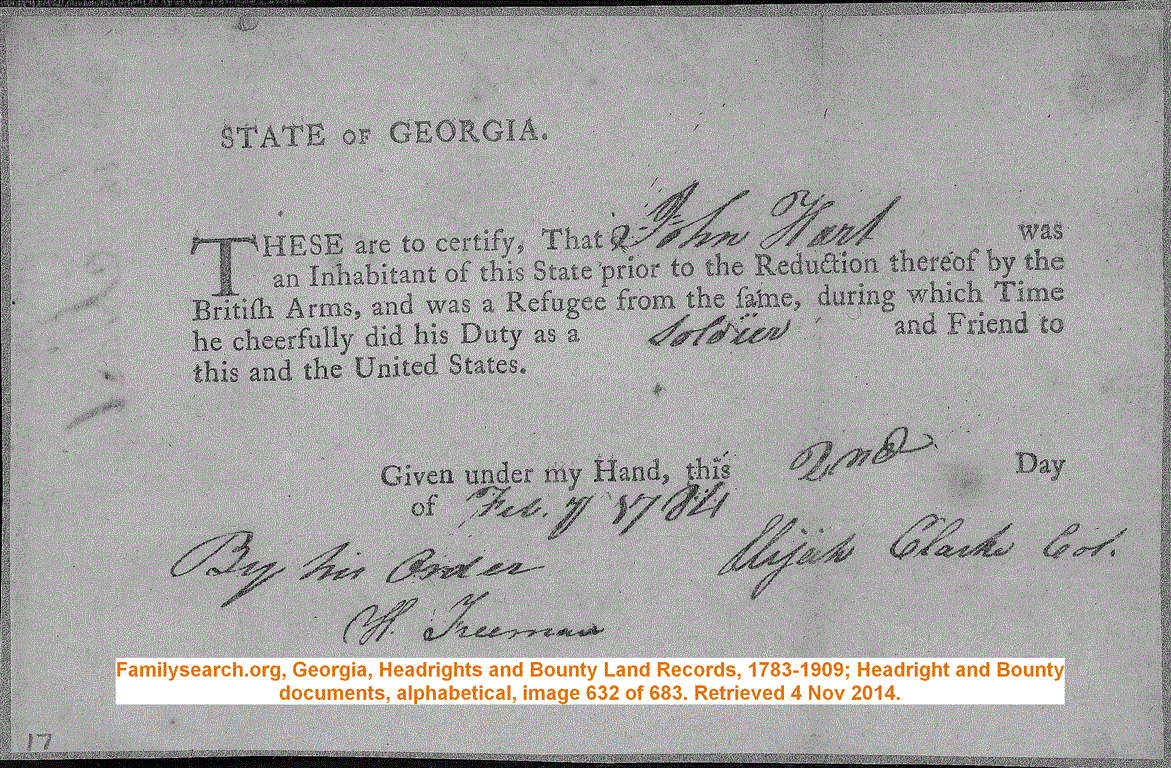 STATE OF GEORGIA.
THESE are to certify, That John Hart was
an Inhabitant of this State prior to the Reduction thereof by the
Britiſh Arms, and was a Refugee from the ſame, during which Time
he cheerfully did his Duty as a Soldier and Friend to
this and the United States.
Given under my Hand, this 2nd Day
of Feb. y 1784
By his Order Elijah Clarke Col.
H. Freeman
Familysearch.org, Georgia, Headrights and Bounty Land Records, 1783-1909; Headright and Bounty
documents, alphabetical, image 632 of 683. Retrieved 4 Nov 2014.
17